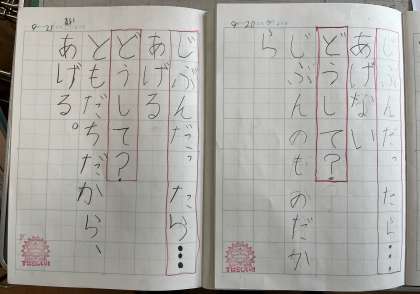 じぶんだったら…
あげない
どうして?
じぶんのもおだか
ら
じぶんだったら…
あげる
どうして?
ともだちだから、
あげる。